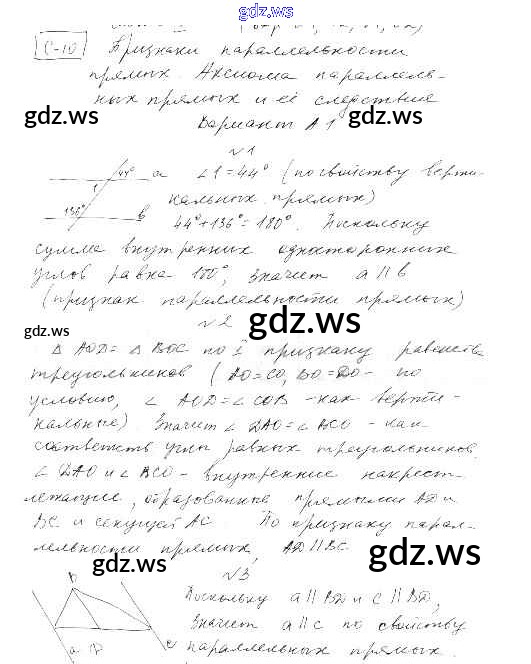 gdz.ws
С-10 Признаки параллельности
прямых. Аксиома параллель-
ных прямых и её следствие
gdz.ws
gdz.ws
Вариант А 1
№1
44° a ∠1=44° (по свойству верти-
1
кальных прямых)
136° b 44°+136°=180°. Поскольку
сумма внутренних односторонних
углов равна 180°, значит a II b
(признак параллельности прямых)
gdz.ws
gdz.ws
№2
Δ AOD = Δ BOC по I признаку равенств
треугольников (AO=CO, BO=DO - по
условию, ∠ AOD=∠COB - как верти-
кальные) Значит ∠ DAO=∠ BCO - как
соответств углы равных треугольников.
∠ DAO и ∠ BCO - внутренние накрест
лежащие, образованные прямыми AD и
BC и секущей AC По признаку парал-
лельности прямых, AD II BC
gdz.ws
gdz.ws
№3
b Поскольку a II BD и c II BD,
Значит a II c по свойству
a D c параллельных прямых.